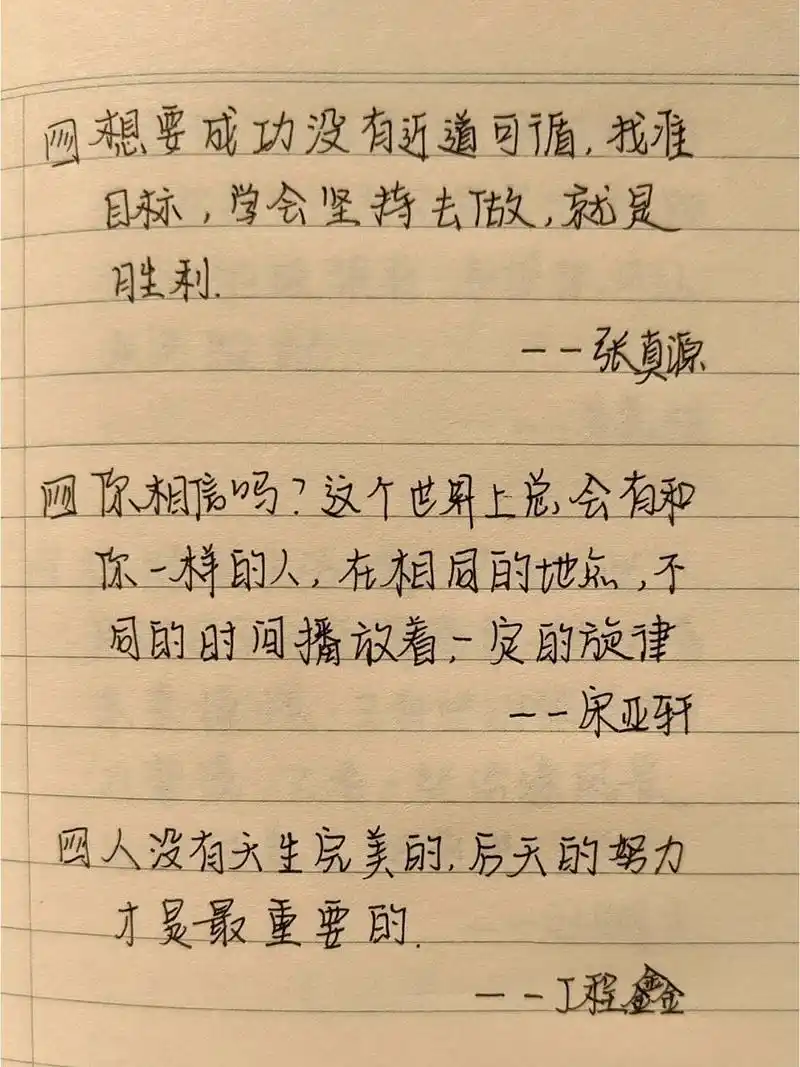 想要成功没有近道可循,找准
目标,学会坚持去做,就是
胜利.
--张真源
你相信吗?这个世界上总会有和
你一样的人,在相同的地点,不
同的时间播放着一定的旋律
--宋亚轩
人没有天生完美的,后天的努力
才是最重要的.
--丁程鑫